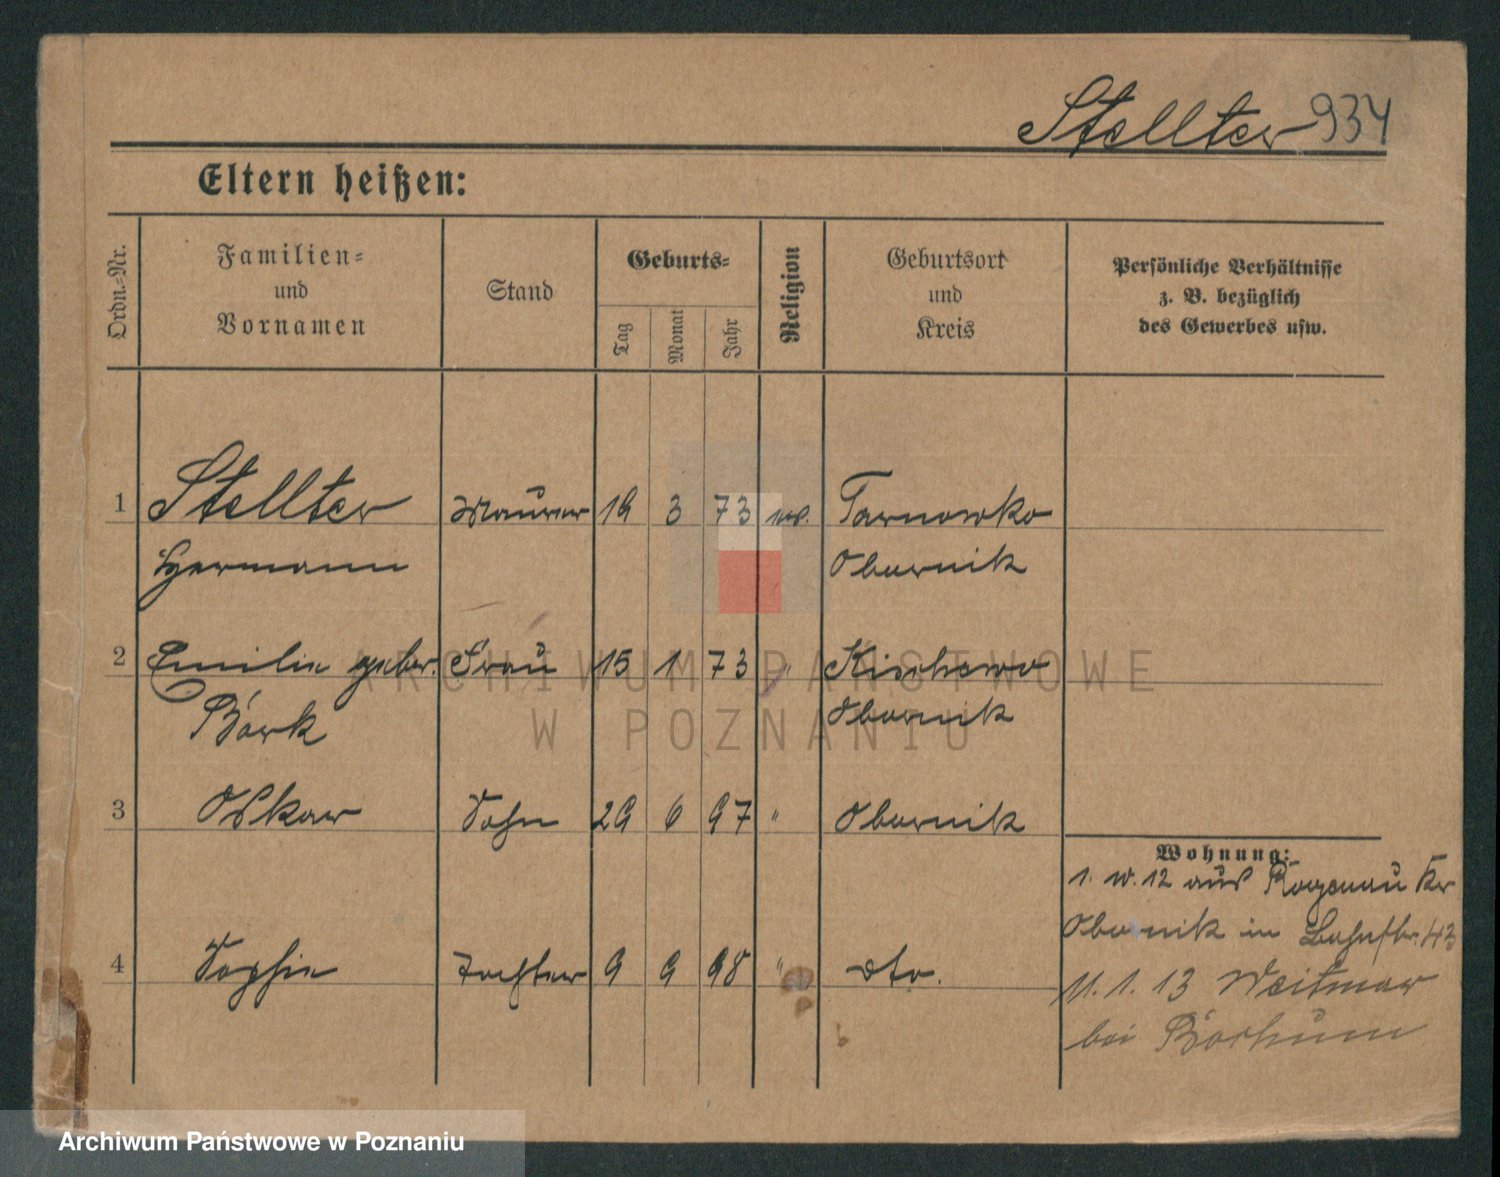 Stellter 934
Eltern heißen:
Ordn.-Nr.
Familien-
und
Vornamen
Stand
Geburts-
Tag
Monat
Jahr
Religion
Geburtsort
und
Kreis
Persönliche Verhältnisse
z. B. bezüglich
des Gewerbes usw.
1 Stellter Maurer 19 3 73 ev. Tarnowko
Hermann Obornik
2 Emilie gebor. Frau 15 1 73 " Kischewo
Bork Obornik
3 Oskar Sohn 29 6 97 " Obornik
Wohnung:
1. 10. 12 aus Kr
Obornik in Bahnstr. 43
4 Sophie Tochter 9 9 98 " dto.
11. 1. 13 Weitmar
bei Bochum
ARCHIWUM PAŃSTWOWE
W POZNANIU
Archiwum Państwowe w Poznaniu